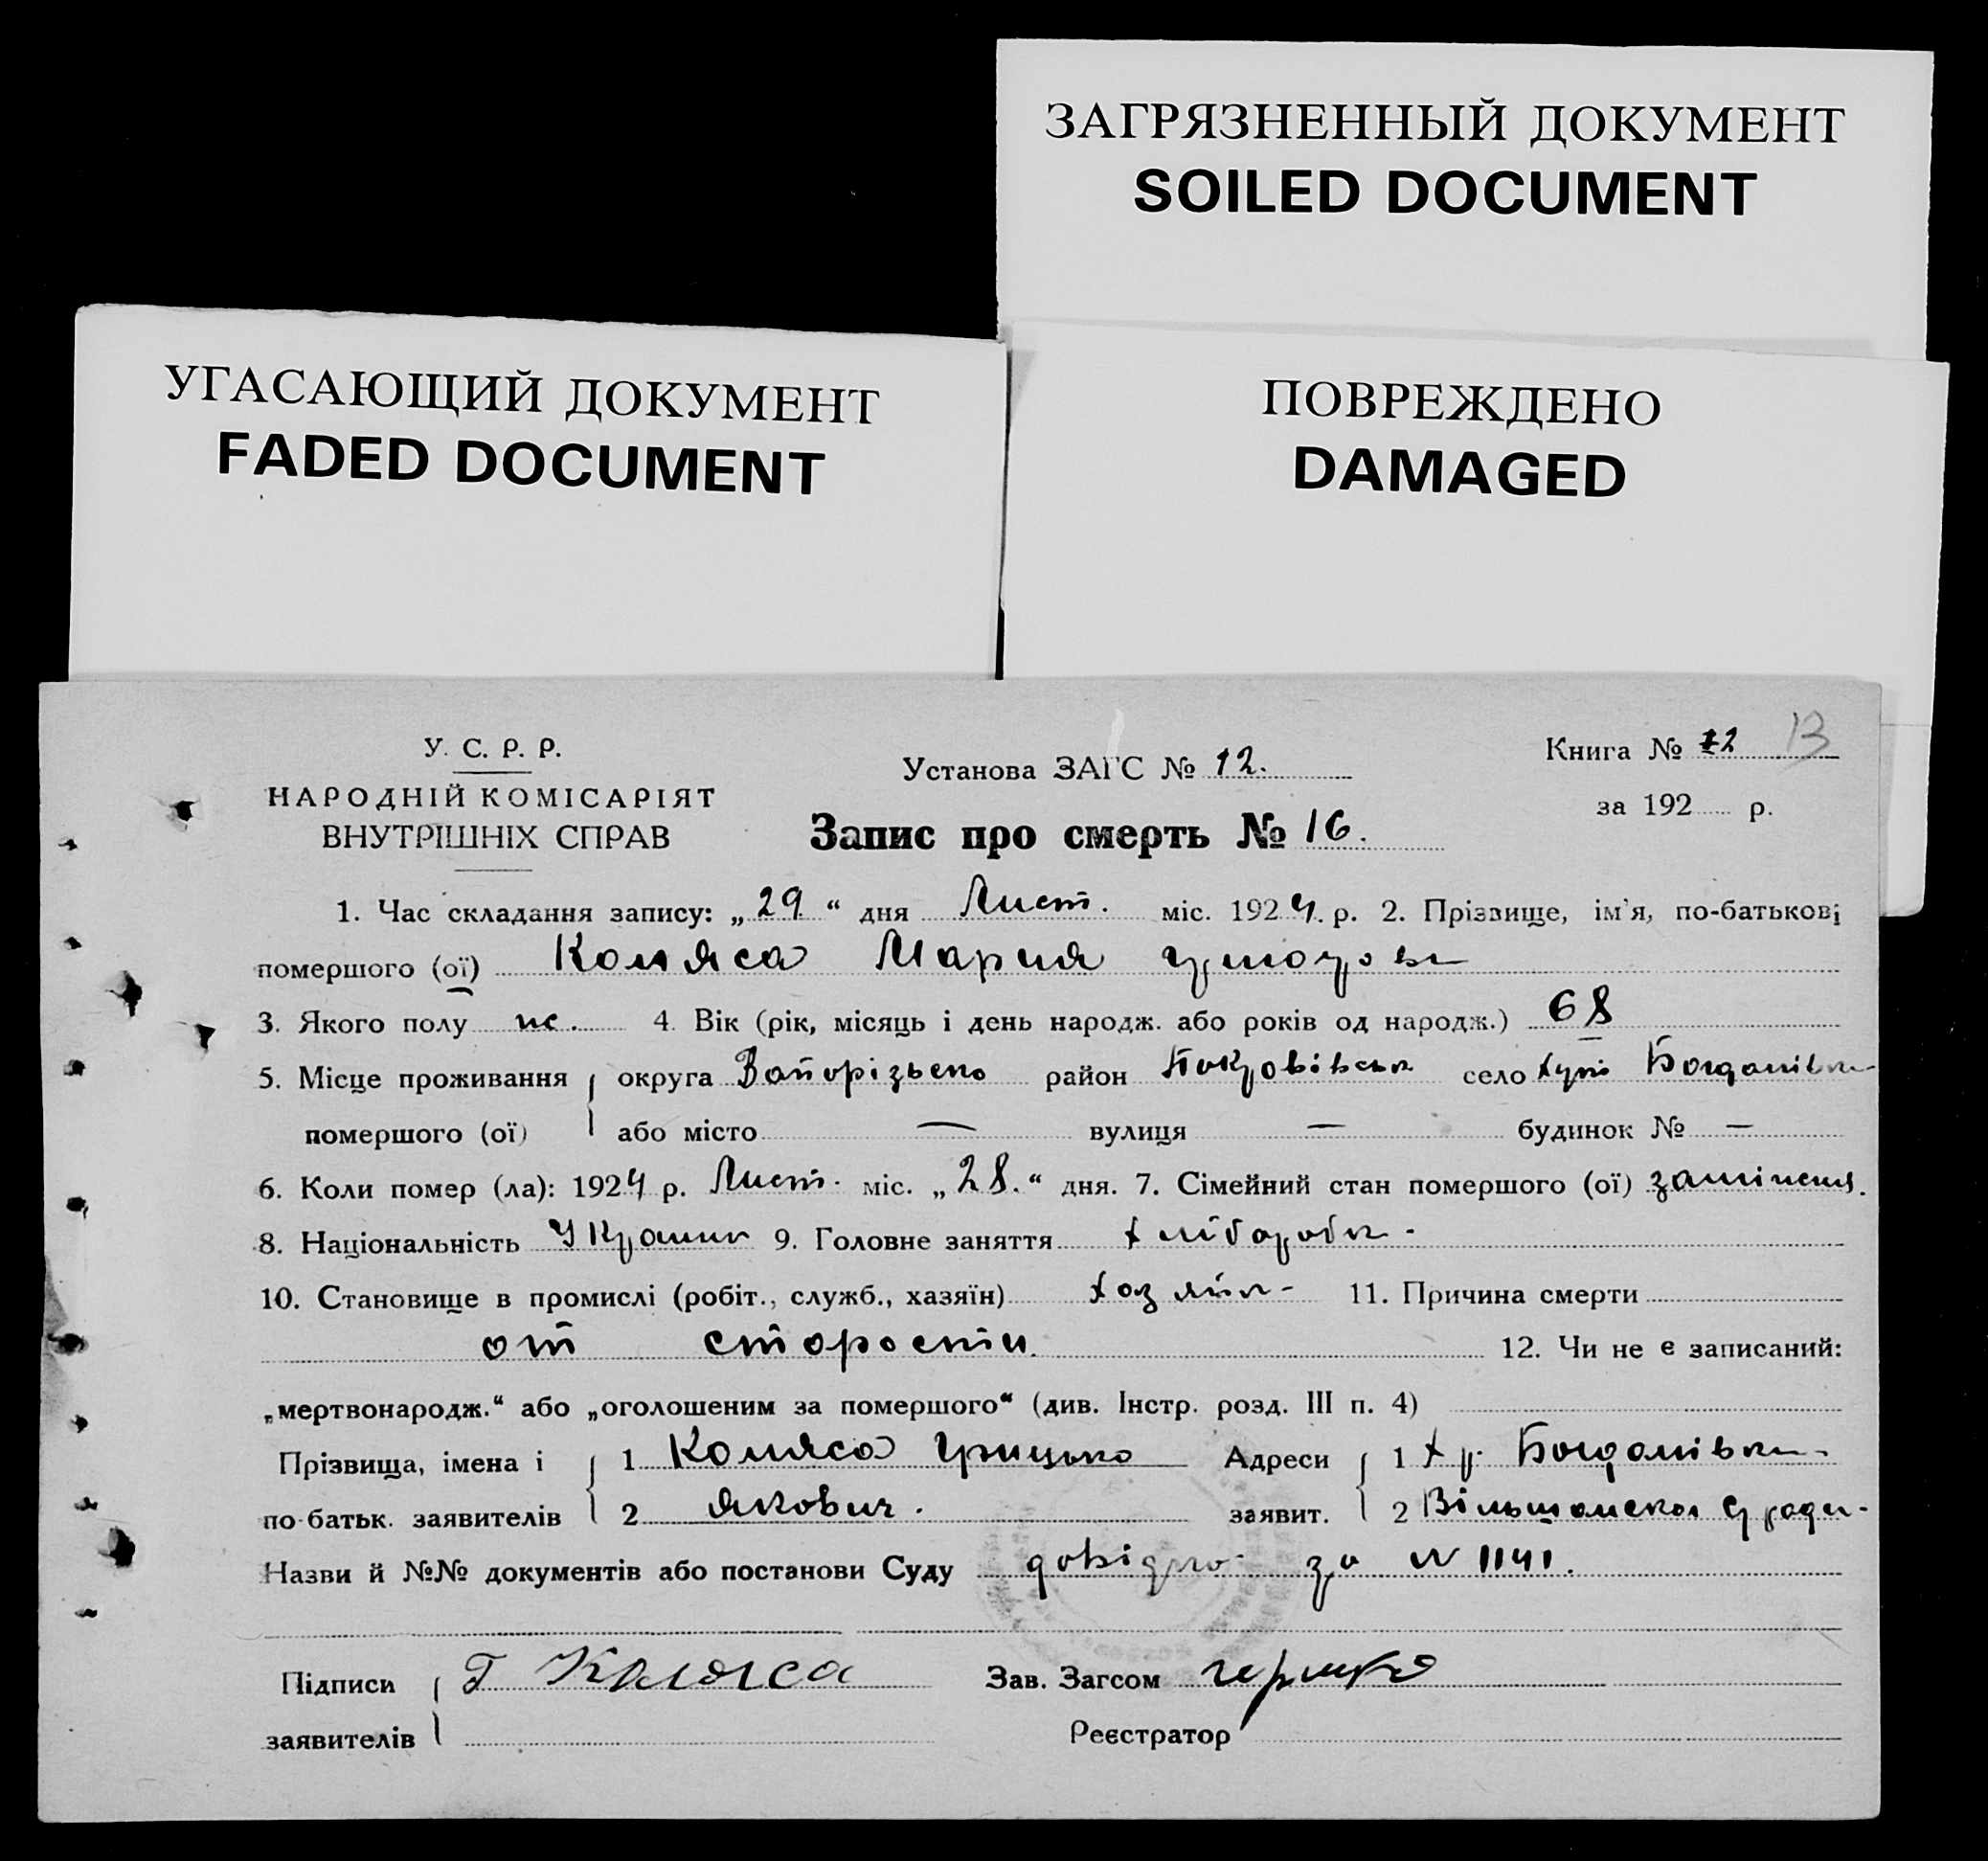 ЗАГРЯЗНЕННЫЙ ДОКУМЕНТ
SOILED DOCUMENT
УГАСАЮЩИЙ ДОКУМЕНТ
FADED DOCUMENT
ПОВРЕЖДЕНО
DAMAGED
У. С. Р. Р.
НАРОДНІЙ КОМІСАРІЯТ
ВНУТРІШНІХ СПРАВ
Установа ЗАГС № 12.
Книга № 12 13
за 192 р.
Запис про смерть № 16.
1. Час складання запису: „29“ дня Лист. міс. 1924. р. 2. Прізвище, ім'я, по-батькові
помершого (ої) Коляса Мария
3. Якого полу 4. Вік (рік, місяць і день народж. або років од народж.) 68
5. Місце проживання округа Запорізьско район Покровівськ село Богданівки
помершого (ої) або місто — вулиця — будинок № —
6. Коли помер (ла): 1924 р. Лист. міс. „28.“ дня. 7. Сімейний стан помершого (ої)
8. Національність Украинк 9. Головне заняття хлібороби
10. Становище в промислі (робіт., служб., хазяїн) хозяйк- 11. Причина смерти
от старости. 12. Чи не є записаний:
„мертвонародж.“ або „оголошеним за помершого“ (див. Інстр. розд. III п. 4)
Прізвища, імена і 1 Коляса Грицько Адреси 1 хр. Богданівки-
по-батьк. заявителів 2 Якович. заявит. 2 Вільшанской с ради-
Назви й №№ документів або постанови Суду довідка за № 1141.
Підписи Г Коляса Зав. Загсом
заявителів Реєстратор